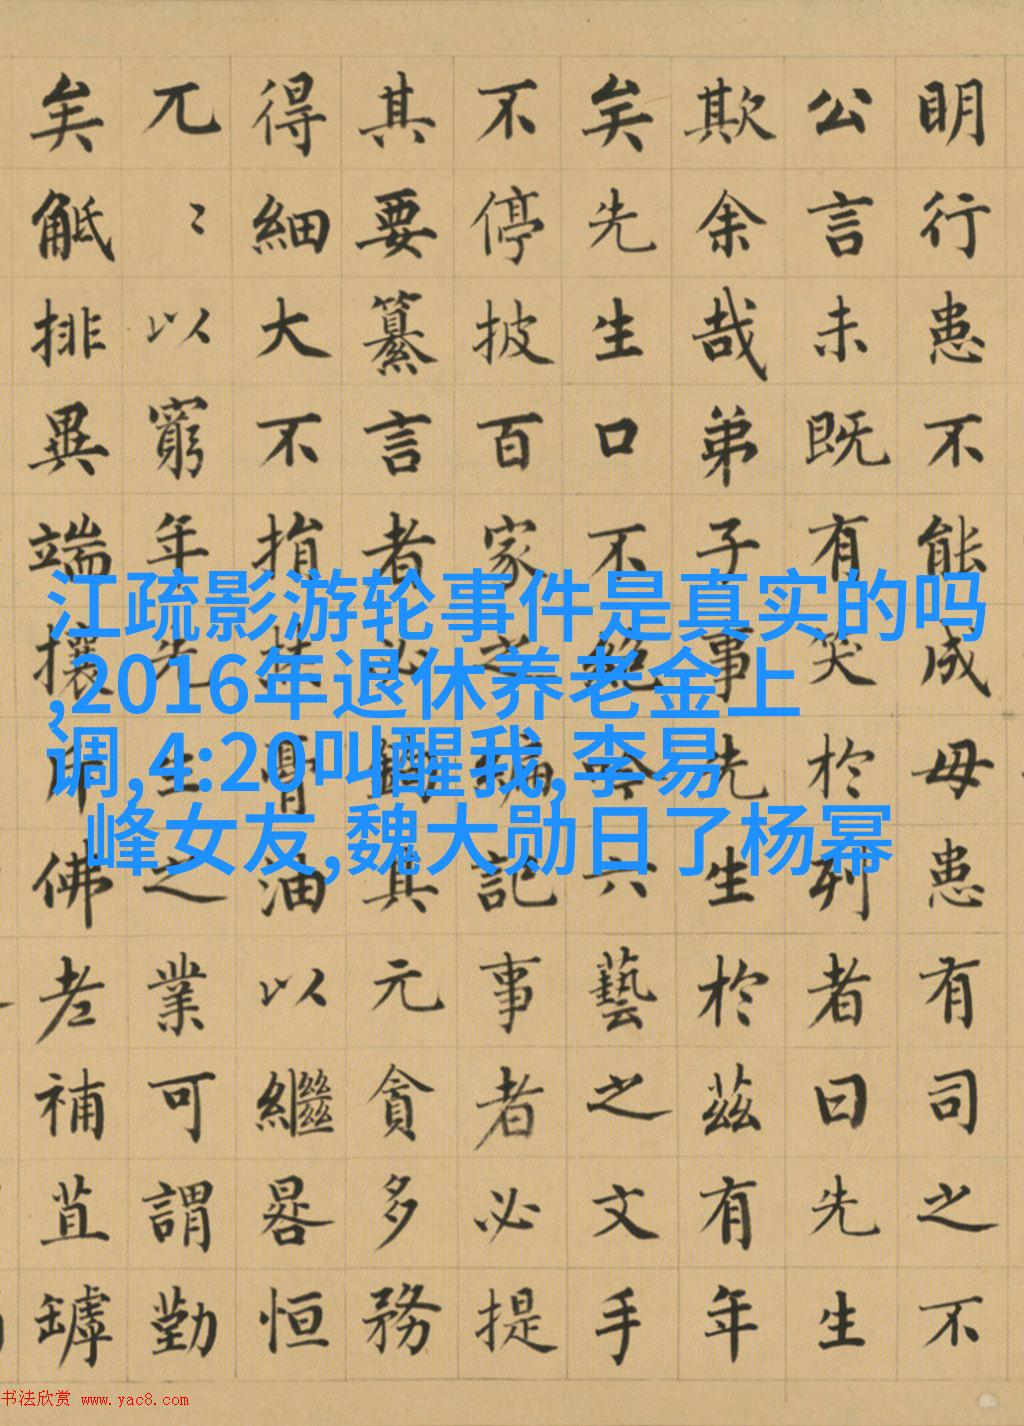 明行患不能成毋患有司之不
公言未既有笑於列者曰先生
欺余哉弟子事先生於茲有年
矣先生口不絕吟六藝之文手
不停披百家之編記事者必提
其要纂言者必鉤其元貪多務
得細大不捐焚膏油以繼晷恒
兀〻以窮年先生之業可謂勤
矣觝排異端攘斥佛老補苴罅
江疏影游轮事件是真实的吗
,2016年退休养老金上
调,4:20叫醒我,李易
峰女友,魏大勋日了杨幂
书法欣赏 www.yac8.com